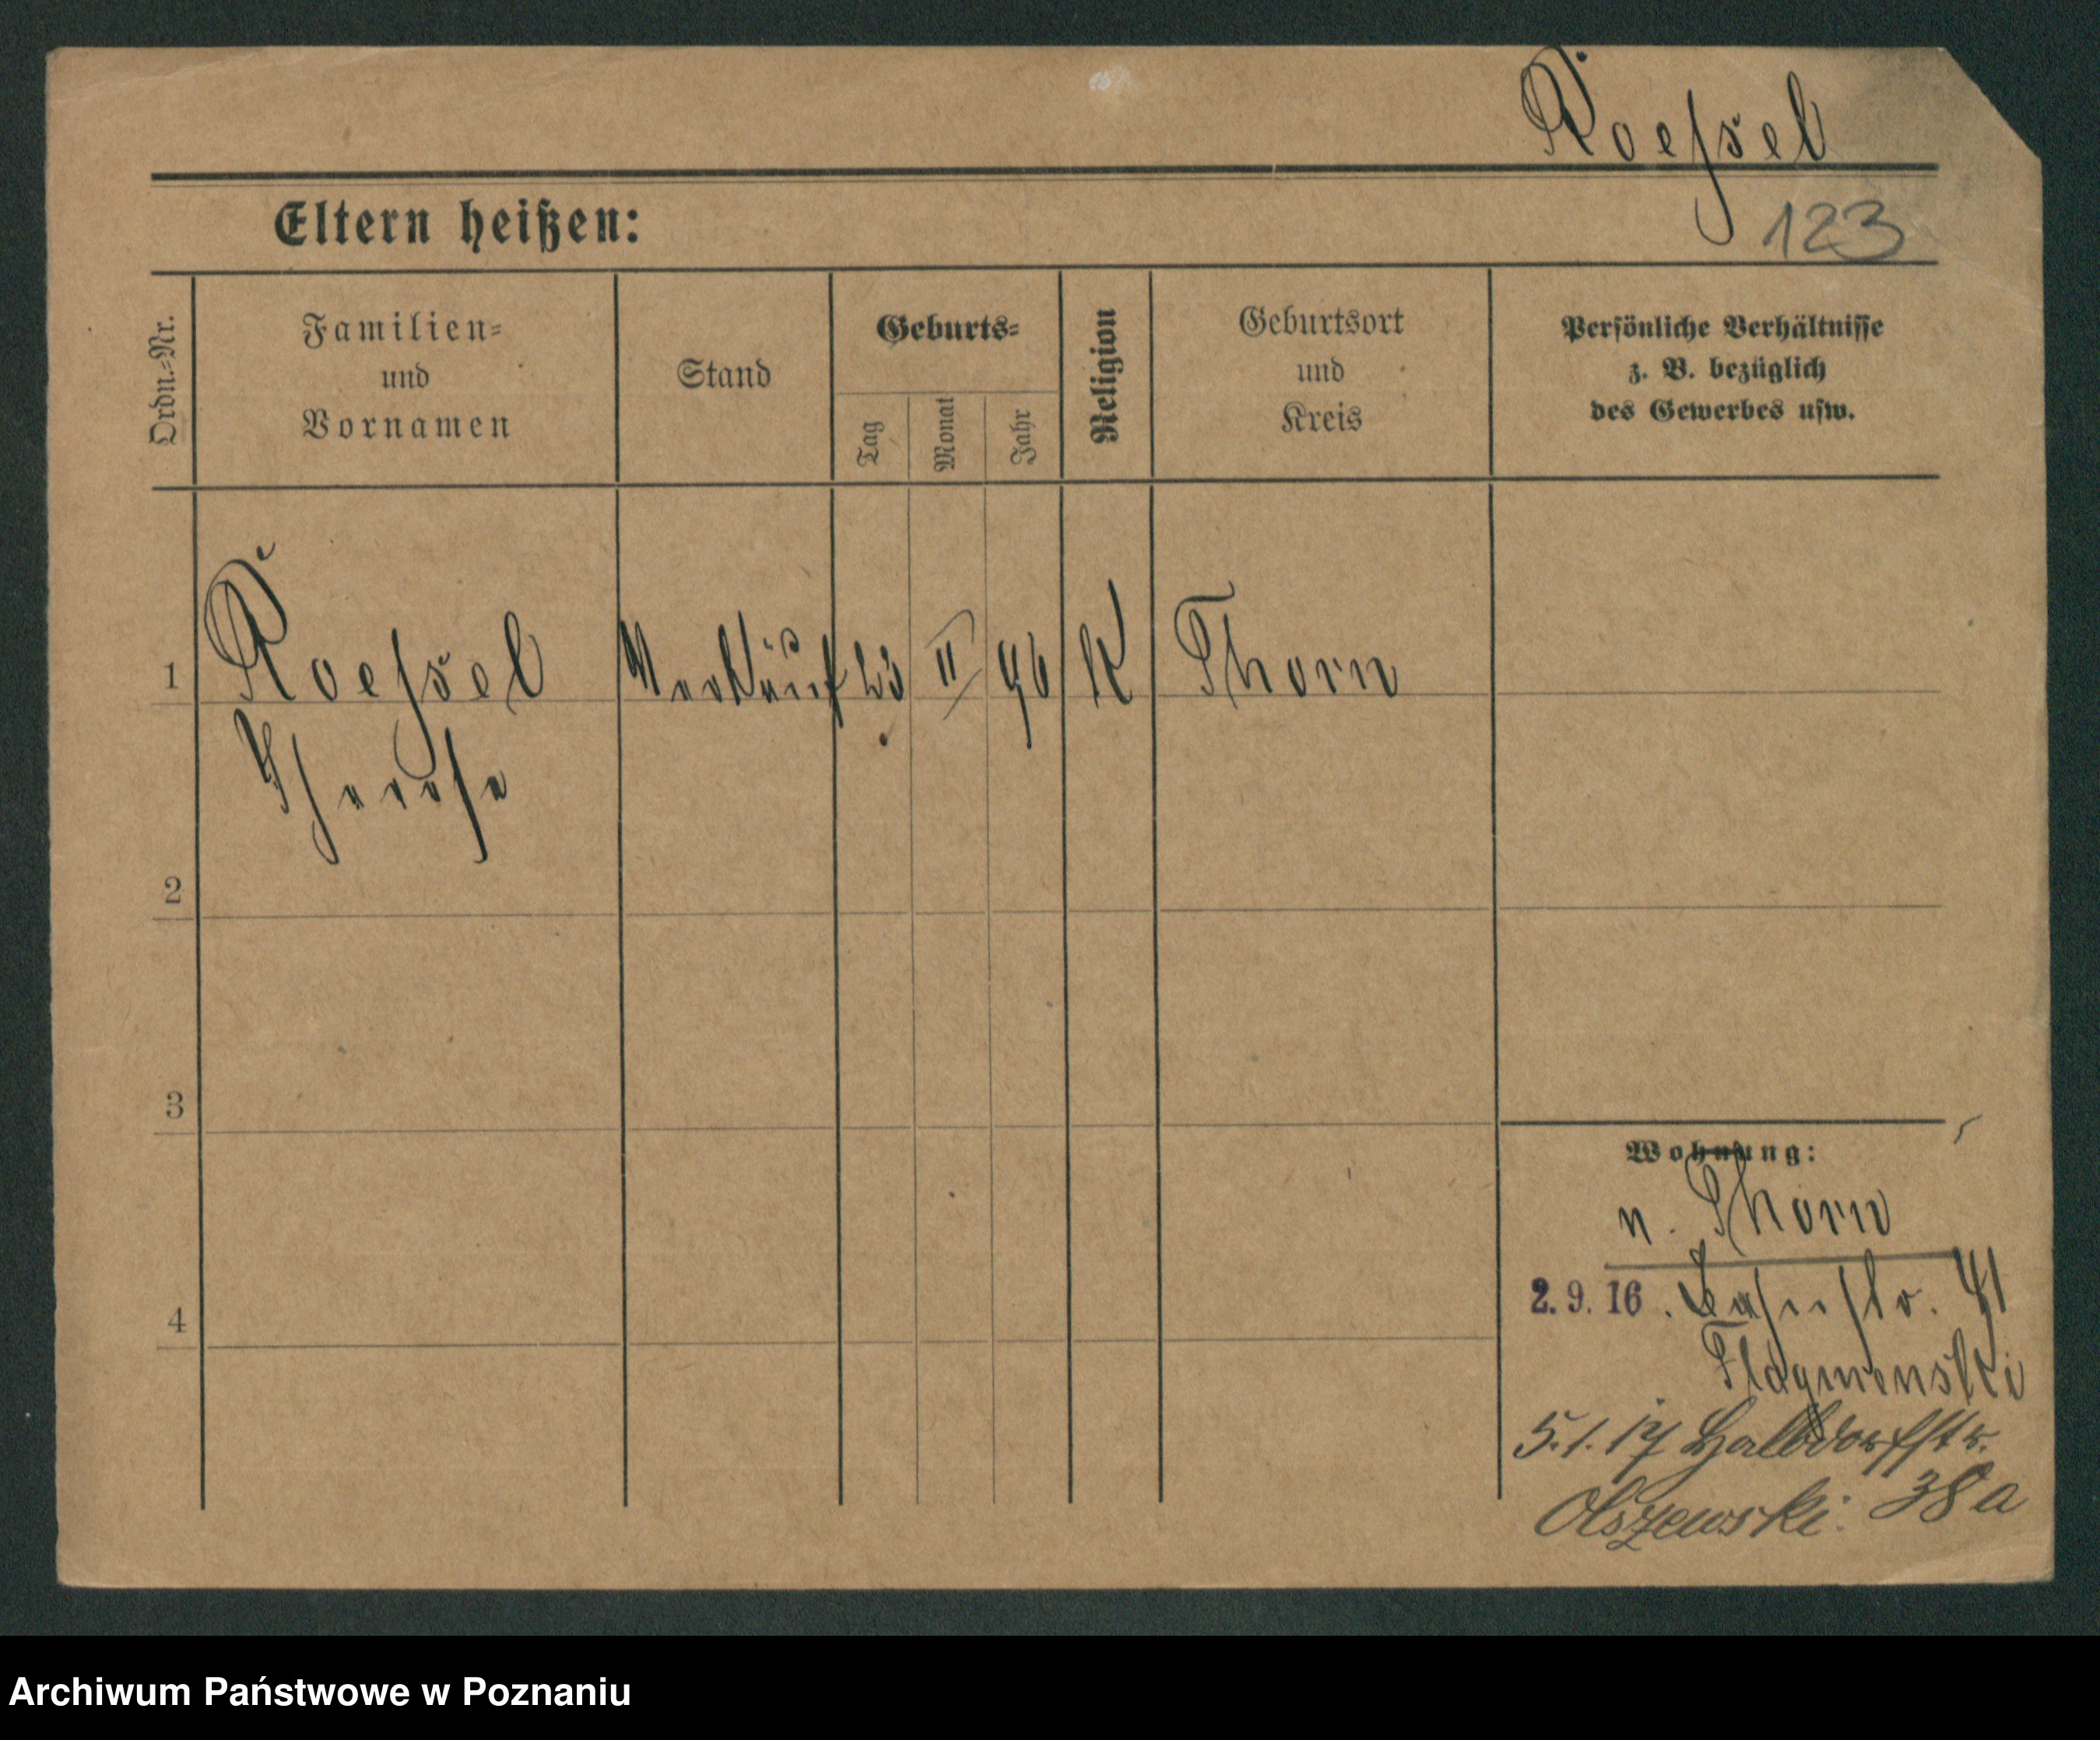 Roeſsel
123
Eltern heißen:
Ordn.=Nr.
Familien=
und
Vornamen
Stand
Geburts=
Tag
Monat
Jahr
Religion
Geburtsort
und
Kreis
Persönliche Verhältnisse
z. B. bezüglich
des Gewerbes usw.
1 Roeſsel Verkäuf 23 II 96 K Thorn
Therese
2
3
4
Wohnung:
n. Thorn
2. 9. 16. 41
5.1.17 Halbdorfstr.
Olszewski. 38a
Archiwum Państwowe w Poznaniu